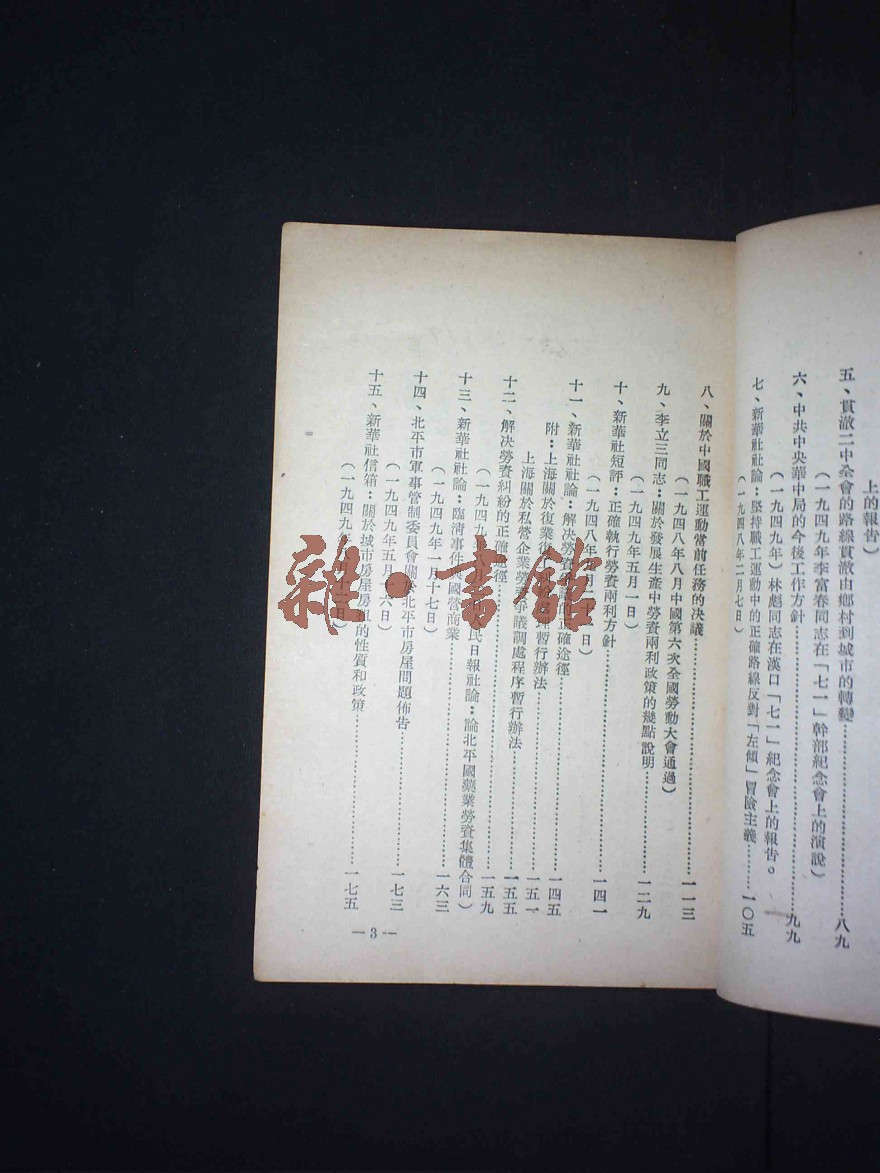 上的報告）
五、貫澈二中全會的路線貫澈由鄉村到城市的轉變……八九
（一九四九年李富春同志在「七一」幹部紀念會上的演說）
六、中共中央華中局的今後工作方針……九九
（一九四九年）林彪同志在漢口「七一」紀念會上的報告。
七、新華社社論：堅持職工運動中的正確路線反對「左傾」冒險主義……一〇五
（一九四八年二月七日）
八、關於中國職工運動當前任務的決議……一一三
（一九四八年八月中國第六次全國勞動大會通過）
九、李立三同志：關於發展生產中勞資兩利政策的幾點說明……一二九
（一九四九年五月一日）
十、新華社短評：正確執行勞資兩利方針……一四一
（一九四八年 月二十 日）
十一、新華社社論：解決勞資 的正確途徑……一四五
附：上海關於復業復 暫行辦法……一五一
上海關於私營企業勞資爭議調處程序暫行辦法……一五五
十二、解决勞資糾紛的正確途徑……一五九
（一九四九年八月 民日報社論：論北平國藥業勞資集體合同）
十三、新華社社論：臨清事件與國營商業……一六三
（一九四九年一月十七日）
十四、北平市軍事管制委員會關於北平市房屋問題佈告……一七三
（一九四九年五月 六日）
十五、新華社信箱：關於城市房屋房租的性質和政策……一七五
（一九四九年 月十 日）
—3—
雜·書館